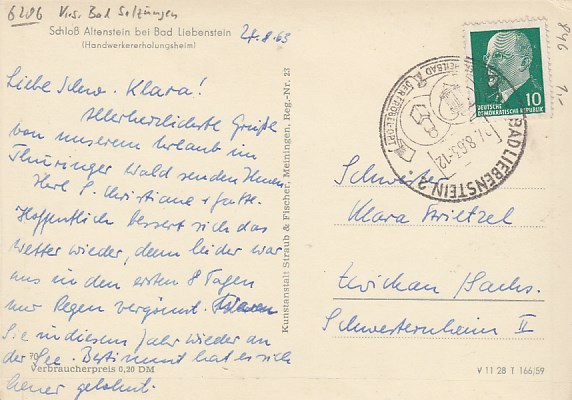 6206 Krs. Bad Salzungen
Schloß Altenstein bei Bad Liebenstein
(Handwerkererholungsheim)
27.8.63
846
1,-
Liebe Schw. Klara!
Allerherzlichste Grüße
von unserem Urlaub im
Thüringer Wald senden Ihnen
Ihre S. Christiane + Gatte.
Hoffentlich bessert sich das
Wetter wieder, denn leider war
uns in den ersten 8 Tagen
nur Regen vergönnt. Waren
Sie in diesem Jahr wieder an
der See. Bestimmt hat es sich
heuer gelohnt.
70
Verbraucherpreis 0,20 DM
Kunstanstalt Straub & Fischer, Meiningen, Reg.-Nr. 23
DEUTSCHE
DEMOKRATISCHE REPUBLIK
10
HEILBAD
BAD LIEBENSTEIN 2
27.8.63-12
Schwester
Klara
Zwickau Sachs.
Schwesternheim II
V 11 28 T 166/59